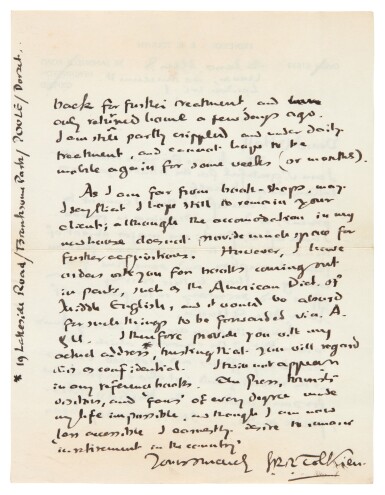 * 19 Lakeside Road/Branksome Park/POOLE/Dorset.
back for further treatment, and have
only returned home a few days ago.
I am still partly crippled and under daily
treatment, and cannot hope to be
mobile again for some weeks (or months).
As I am far from book-shops, may
I say that I hope still to remain your
client; although the accomodation in my
new house does not provide much space for
further acquisitions. However, I have
orders with you for books coming out
in parts, such as the American Dict. of
Middle English, and it would be absurd
for such things to be forwarded via. A.
&U. I therefore provide you with my
actual address*, trusting that you will regard
this as confidential. I shall not appear
in any reference books. The Press, tourists
visitors, and 'fans' of every degree made
my life impossible, and though I am now
less accessible I earnestly desire to
'in retirement in the country'
Yours sincerely J.R.R. Tolkien.